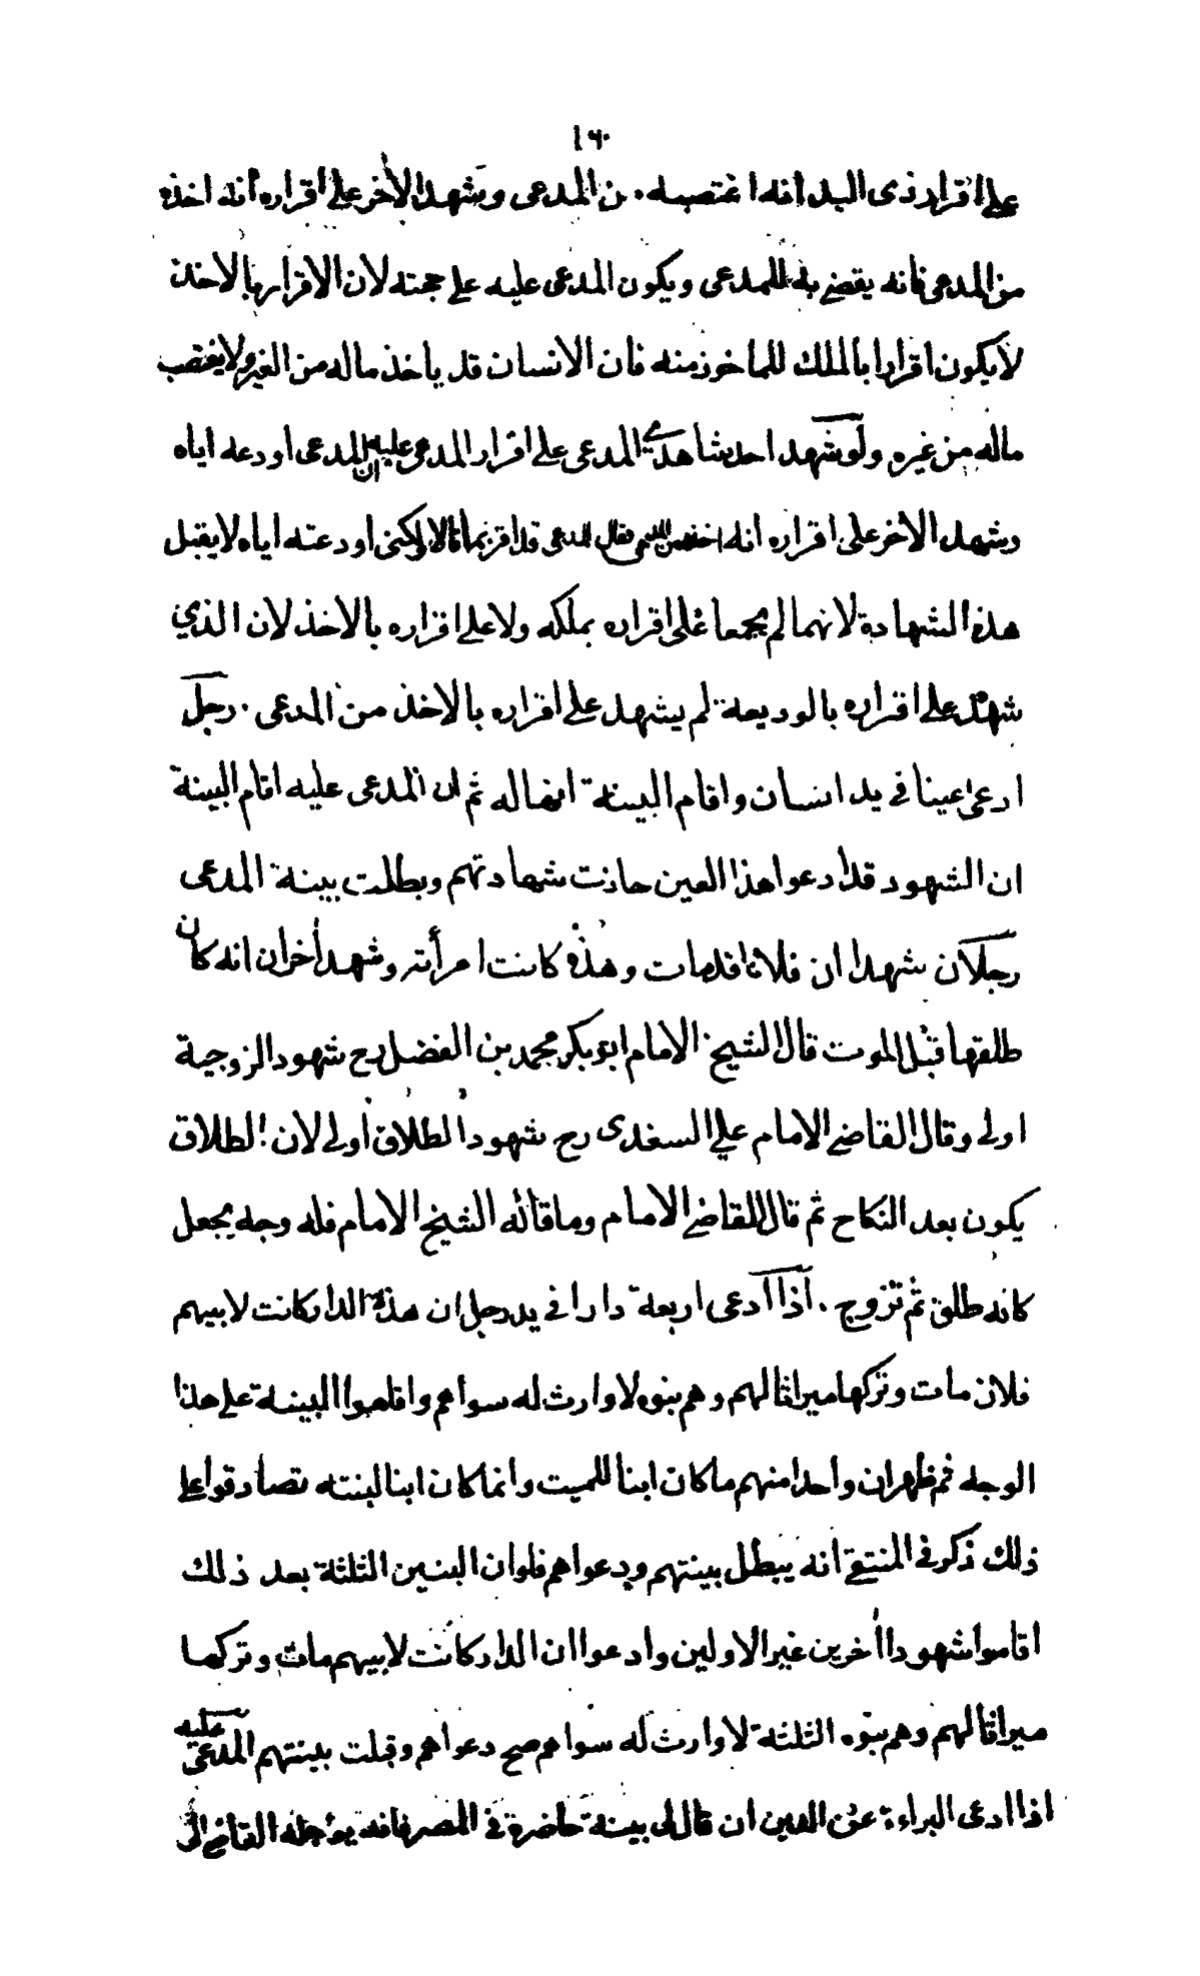 ١٦٠
على اقرار ذى اليد انه اغتصبه من المدعى وشهد الأخر على اقراره انه اخذه
من المدعى فانه يقضى به للمدعى ويكون المدعى عليه على حجته لان الاقرار بالاخذ
لا يكون اقرارا بالملك للماخوذ منه فان الانسان قد ياخذ ماله من الغير ولا يغتصب
ماله من غيره ولو شهد احد شاهدي المدعى على اقرار المدعى عليه ان المدعى اودعه اياه
وشهد الاخر على اقراره انه اخذه من المدعى فقال المدعى قد اقر بما قالا ولكنى اودعته اياه لا يقبل
هذه الشهادة لانهما لم يجمعا على اقراره بملكه ولا على اقراره بالاخذ لان الذي
شهد على اقراره بالوديعة لم يشهد على اقراره بالاخذ من المدعى . رجل
ادعى عينا في يد انسان واقام البينة انها له ثم ان المدعى عليه اقام البينة
ان الشهود قد ادعوا هذا العين جازت شهادتهم وبطلت بينة المدعى
رجلان شهدا ان فلانا قد مات وهذه كانت امرأته وشهد أخران انه كان
طلقها قبل الموت قال الشيخ الامام ابو بكر محمد بن الفضل رح شهود الزوجية
اولى وقال القاضى الامام علي السغدى رح شهود الطلاق أولى لان الطلاق
يكون بعد النكاح ثم قال القاضى الامام وما قاله الشيخ الامام فله وجه يجعل
كانه طلق ثم تزوج . اذا ادعى اربعة دارا في يد رجل ان هذه الدار كانت لابيهم
فلان مات وتركها ميراثا لهم وهم بنوه لا وارث له سواهم واقاموا البينة على هذا
الوجه ثم ظهر ان واحدا منهم ما كان ابنا للميت وانما كان ابنا لبنته تصادقوا على
ذلك ذكر في المنتقى انه يبطل بينتهم ودعواهم فلو ان البنين الثلثة بعد ذلك
اقاموا شهودا أخرين غير الاولين وادعوا ان الدار كانت لابيهم مات وتركها
ميراثا لهم وهم بنوه الثلثة لا وارث له سواهم صح دعواهم وقبلت بينتهم المدعى عليه
اذا ادعى البراءة عن الدين ان قال لى بينة حاضرة في المصر فانه يؤجله القاضى الى